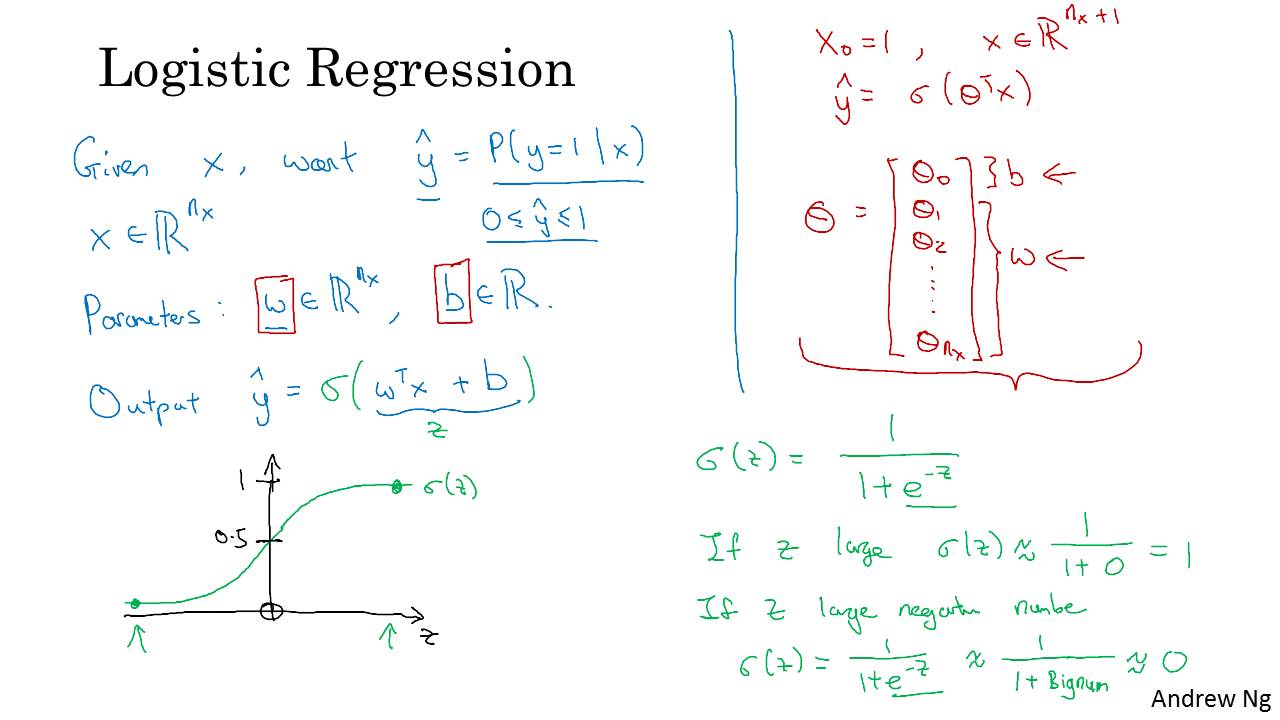 Logistic Regression
Given x, want ŷ = P(y=1|x)
0 ≤ ŷ ≤ 1
x ∈ ℝ^{n_x}
Parameters: w ∈ ℝ^{n_x}, b ∈ ℝ.
Output ŷ = σ(w^T x + b)
z
1
σ(z)
0.5
z
x_0 = 1, x ∈ ℝ^{n_x+1}
ŷ = σ(θ^T x)
θ = [θ_0 } b ←
θ_1
θ_2
⋮
θ_{n_x}] } w ←
σ(z) = 1/(1+e^{-z})
If z large σ(z) ≈ 1/(1+0) = 1
If z large negative number
σ(z) = 1/(1+e^{-z}) ≈ 1/(1+Bignum) ≈ 0
Andrew Ng